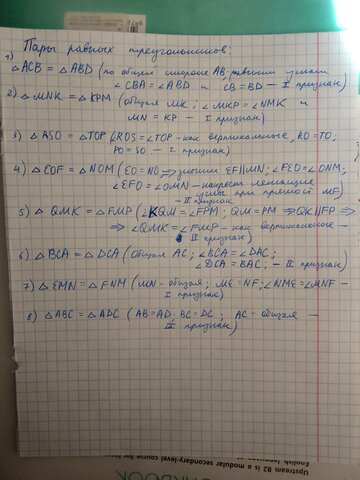 Пары равных треугольников:
1)
△ACB = △ABD (по общей стороне AB, равным углам
∠CBA = ∠ABD и CB = BD – I признак)
2) △MNK = △KPM (общая MK; ∠MKP = ∠NMK и
MN = KP – I признак)
3) △ASO = △TOP (∠ROS = ∠TOP - как вертикальные, RO = TO,
PO = SO – I признак)
4) △COF = △NOM (EO = NO ⇒ EF || MN; ∠FEO = ∠ONM,
∠EFO = ∠OMN - накрест лежащие
углы при прямой MF) –
– II признак
5) △QMK = △FMP (∠KQM = ∠FPM; QM = PM ⇒ QK || FP ⇒
⇒ ∠QMK = ∠FMP - как вертикальные –
II признак)
6) △BCA = △DCA (общая AC; ∠BCA = ∠DAC;
∠DCA = BAC, – II признак)
7) △EMN = △FNM (MN - общая; ME = NF; ∠NME = ∠MNF –
I признак)
8) △ABC = △ADC (AB = AD, BC = DC; AC - общая –
III признак)
Upstream B2 is a modular secondary-level course for